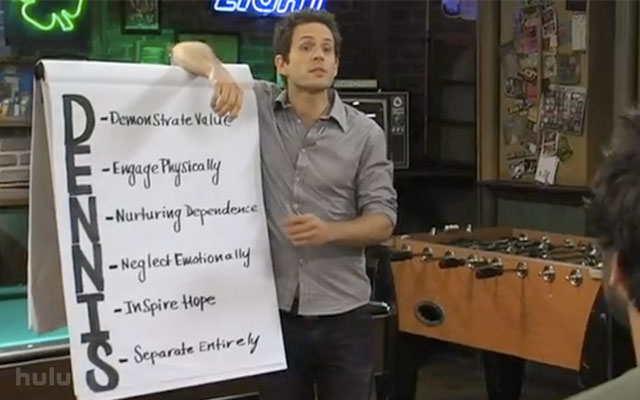 LIGHT
DENNIS
-Demonstrate Value
-Engage Physically
-Nurturing Dependence
-Neglect Emotionally
-InSpire Hope
-Separate Entirely
hulu